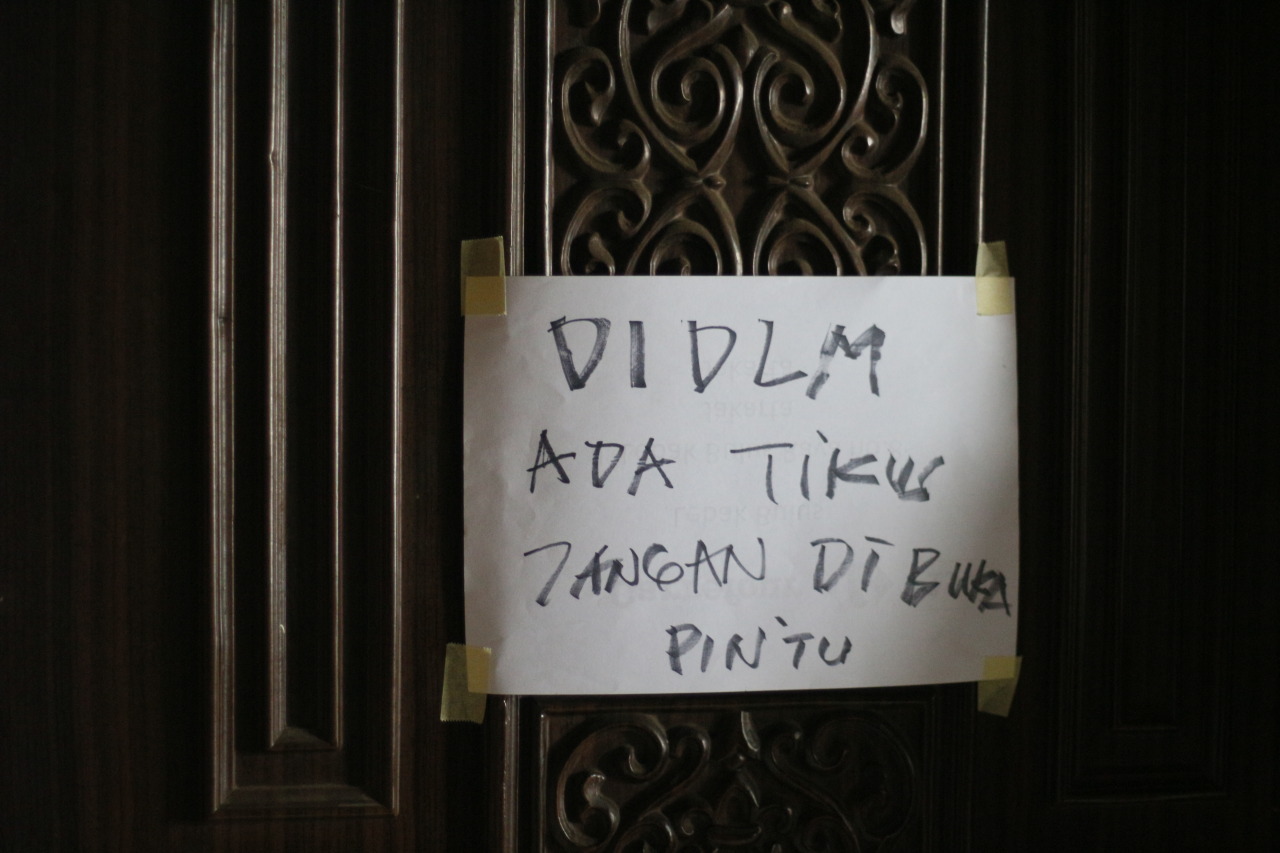 DI DLM
ADA TIKUS
JANGAN DI BUKA
PINTU